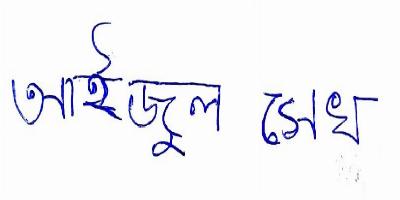 আইজুল সেখ